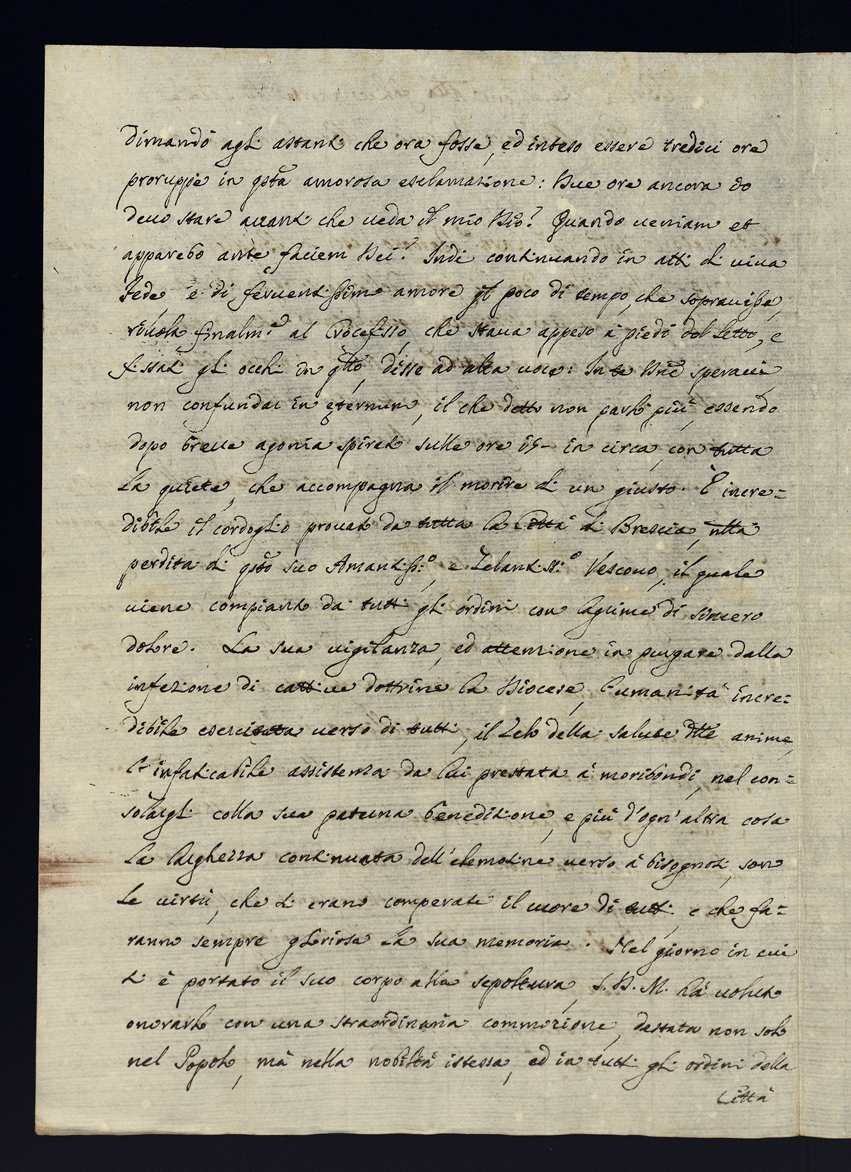 dimandò agli astanti che ora fosse, ed inteso essere tredici ore
proruppe in qsta amorosa esclamazione: Due ore ancora io
devo stare avanti che veda il mio Dio? Quando veniam et
apparebo ante faciem Dei? Indi continuando in atti di viva
Fede e di ferventissimo amore pl poco di tempo, che sopravisse,
rivolto finalmte al Crocefisso, che stava appeso a piedi del Letto, e
fissati gli occhi in qllo, disse ad alta voce: In te Dne speravi
non confundar in eternum, il che detto non parlò più, essendo
dopo breve agonia spirato sulle ore 15- in circa, con tutta
la quiete, che accompagna il morire di un giusto. È incre=
dibile il cordoglio provato da tutta la Città di Brescia, nlla
perdita di qsto suo Amantissº, e Zelantissº Vescovo, il quale
viene compianto da tutti gli ordini con lagrime di sincero
dolore. La sua vigilanza, ed attenzione in purgare dalla
infezione di cattive dottrine la Diocese, l'umanità incre=
dibile esercitata verso di tutti, il Zelo della salute dlle anime,
l'infaticabile assistenza da lui prestata à moribondi, nel con=
solargli colla sua paterna benedizione, e più d'ogn'altra cosa
la larghezza continuata dell'elemosine verso à bisognosi, son
le virtù, che si erano comperate il cuore di tutti, e che fa=
ranno sempre gloriosa la sua memoria. Nel giorno in cui
si è portato il suo corpo alla sepoltura, S. D. M. hà voluto
onorarlo con una straordinaria commozione, destata non solo
nel Popolo, mà nella nobiltà istessa, ed in tutti gli ordini della
Città